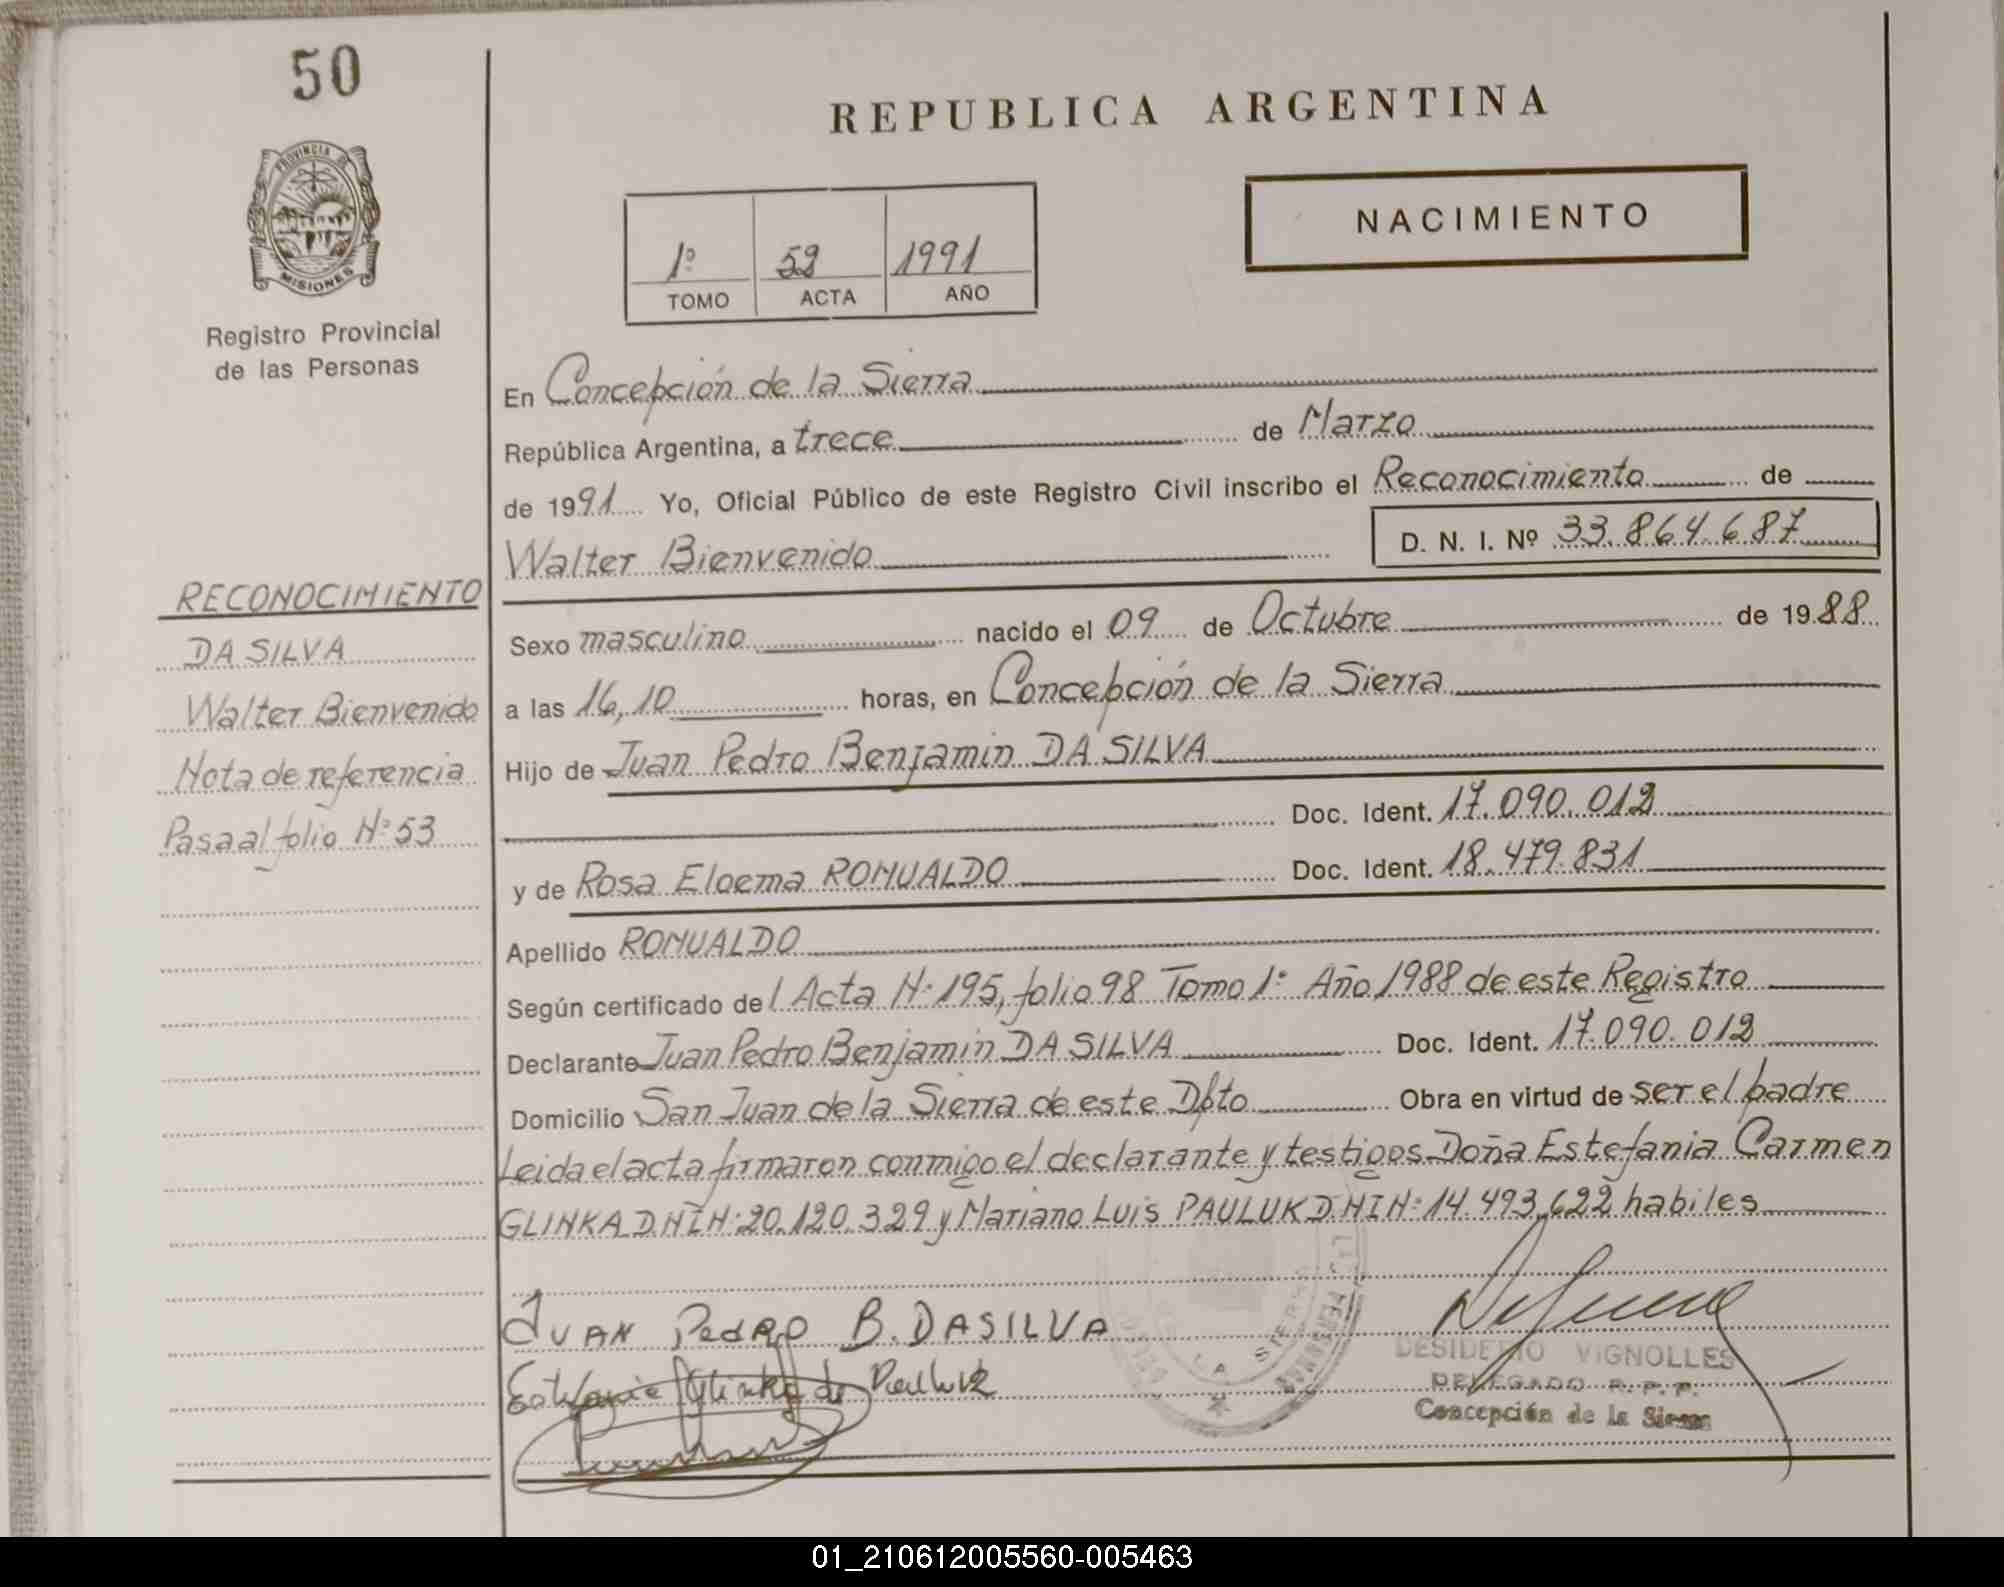 50
PROVINCIA DE
MISIONES
Registro Provincial
de las Personas
REPUBLICA ARGENTINA
NACIMIENTO
1º 52 1991
TOMO ACTA AÑO
En Concepción de la Sierra
República Argentina, a trece de Marzo
de 1991 Yo, Oficial Público de este Registro Civil inscribo el Reconocimiento de
Walter Bienvenido D. N. I. Nº 33.864.687
Sexo masculino nacido el 09 de Octubre de 1988
a las 16,10 horas, en Concepción de la Sierra
Hijo de Juan Pedro Benjamin DA SILVA
Doc. Ident. 17.090.012
y de Rosa Eloema ROMUALDO Doc. Ident. 18.479.831
Apellido ROMUALDO
Según certificado del Acta Nº 195, folio 98 Tomo 1º Año 1988 de este Registro
Declarante Juan Pedro Benjamin DA SILVA Doc. Ident. 17.090.012
Domicilio San Juan de la Sierra de este Dpto Obra en virtud de ser el padre
Leida el acta firmaron conmigo el declarante y testigos Doña Estefania Carmen
GLINKA D.N.I Nº 20.120.329 y Mariano Luis PAULUK D.N.I Nº 14.493.622 habiles
RECONOCIMIENTO
DA SILVA
Walter Bienvenido
Nota de referencia
Pasa al folio Nº 53
JUAN PedRO B. DASILVA
Estefania Glinka de Pauluk
LA SIERRA
DESIDERIO VIGNOLLES
DELEGADO R. P. P.
Concepción de la Sierra
01_210612005560-005463